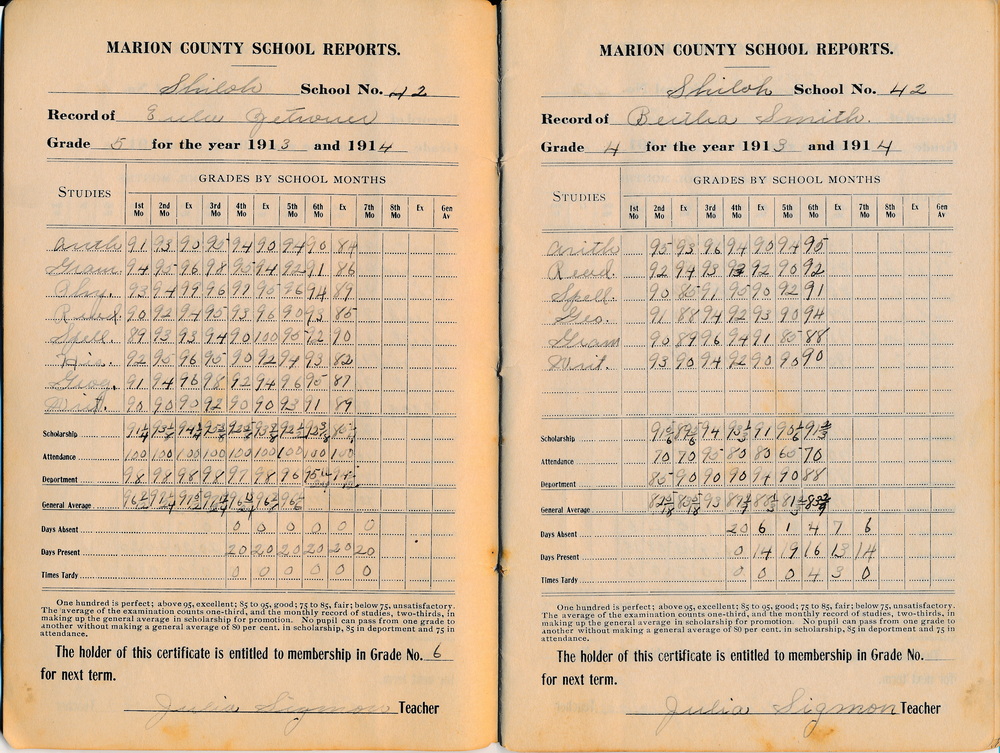 MARION COUNTY SCHOOL REPORTS.
Shiloh School No. 42
Record of
Grade 5 for the year 1913 and 1914
STUDIES GRADES BY SCHOOL MONTHS
1st Mo 2nd Mo Ex 3rd Mo 4th Mo Ex 5th Mo 6th Mo Ex 7th Mo 8th Mo Ex Gen Av
Arith 91 93 90 95 94 90 94 90 84
Gram. 94 95 96 98 95 94 92 91 86
93 94 99 96 97 95 96 94 89
Read. 90 92 94 95 93 96 90 93 85
Spell. 89 93 93 94 90 100 95 92 90
His. 92 95 96 95 90 92 94 93 82
Geog. 91 94 96 98 92 94 96 95 87
Writ. 90 90 90 92 90 90 93 91 89
Scholarship
Attendance 100 100 100 100 100 100 100 100 100
Department 98 98 98 98 97 98 96
General Average
Days Absent 0 0 0 0 0 0
Days Present 20 20 20 20 20 20
Times Tardy 0 0 0 0 0 0
One hundred is perfect; above 95, excellent; 85 to 95, good; 75 to 85, fair; below 75, unsatisfactory.
The average of the examination counts one-third, and the monthly record of studies, two-thirds, in
making up the general average in scholarship for promotion. No pupil can pass from one grade to
another without making a general average of 80 per cent. in scholarship, 85 in deportment and 75 in
attendance.
The holder of this certificate is entitled to membership in Grade No. 6
for next term.
Julia Sigmon Teacher
MARION COUNTY SCHOOL REPORTS.
Shiloh School No. 42
Record of Bertha Smith.
Grade 4 for the year 1913 and 1914
STUDIES GRADES BY SCHOOL MONTHS
1st Mo 2nd Mo Ex 3rd Mo 4th Mo Ex 5th Mo 6th Mo 7th Mo 8th Mo Ex Gen Av
Arith 95 93 96 94 90 94 95
Read. 92 94 93 93 92 90 92
Spell. 90 85 91 95 90 92 91
Geo. 91 88 94 92 93 90 94
Gram 90 89 96 94 91 85 88
Writ. 93 90 94 92 90 90 90
Scholarship
Attendance 70 70 95 80 80 65 70
Department 85 90 90 90 94 90 88
General Average
Days Absent 20 6 1 4 7 6
Days Present 0 14 19 16 13 14
Times Tardy 0 0 0 4 3 0
One hundred is perfect; above 95, excellent; 85 to 95, good; 75 to 85, fair; below 75, unsatisfactory.
The average of the examination counts one-third, and the monthly record of studies, two-thirds, in
making up the general average in scholarship for promotion. No pupil can pass from one grade to
another without making a general average of 80 per cent. in scholarship, 85 in deportment and 75 in
attendance.
The holder of this certificate is entitled to membership in Grade No.
for next term.
Julia Sigmon Teacher